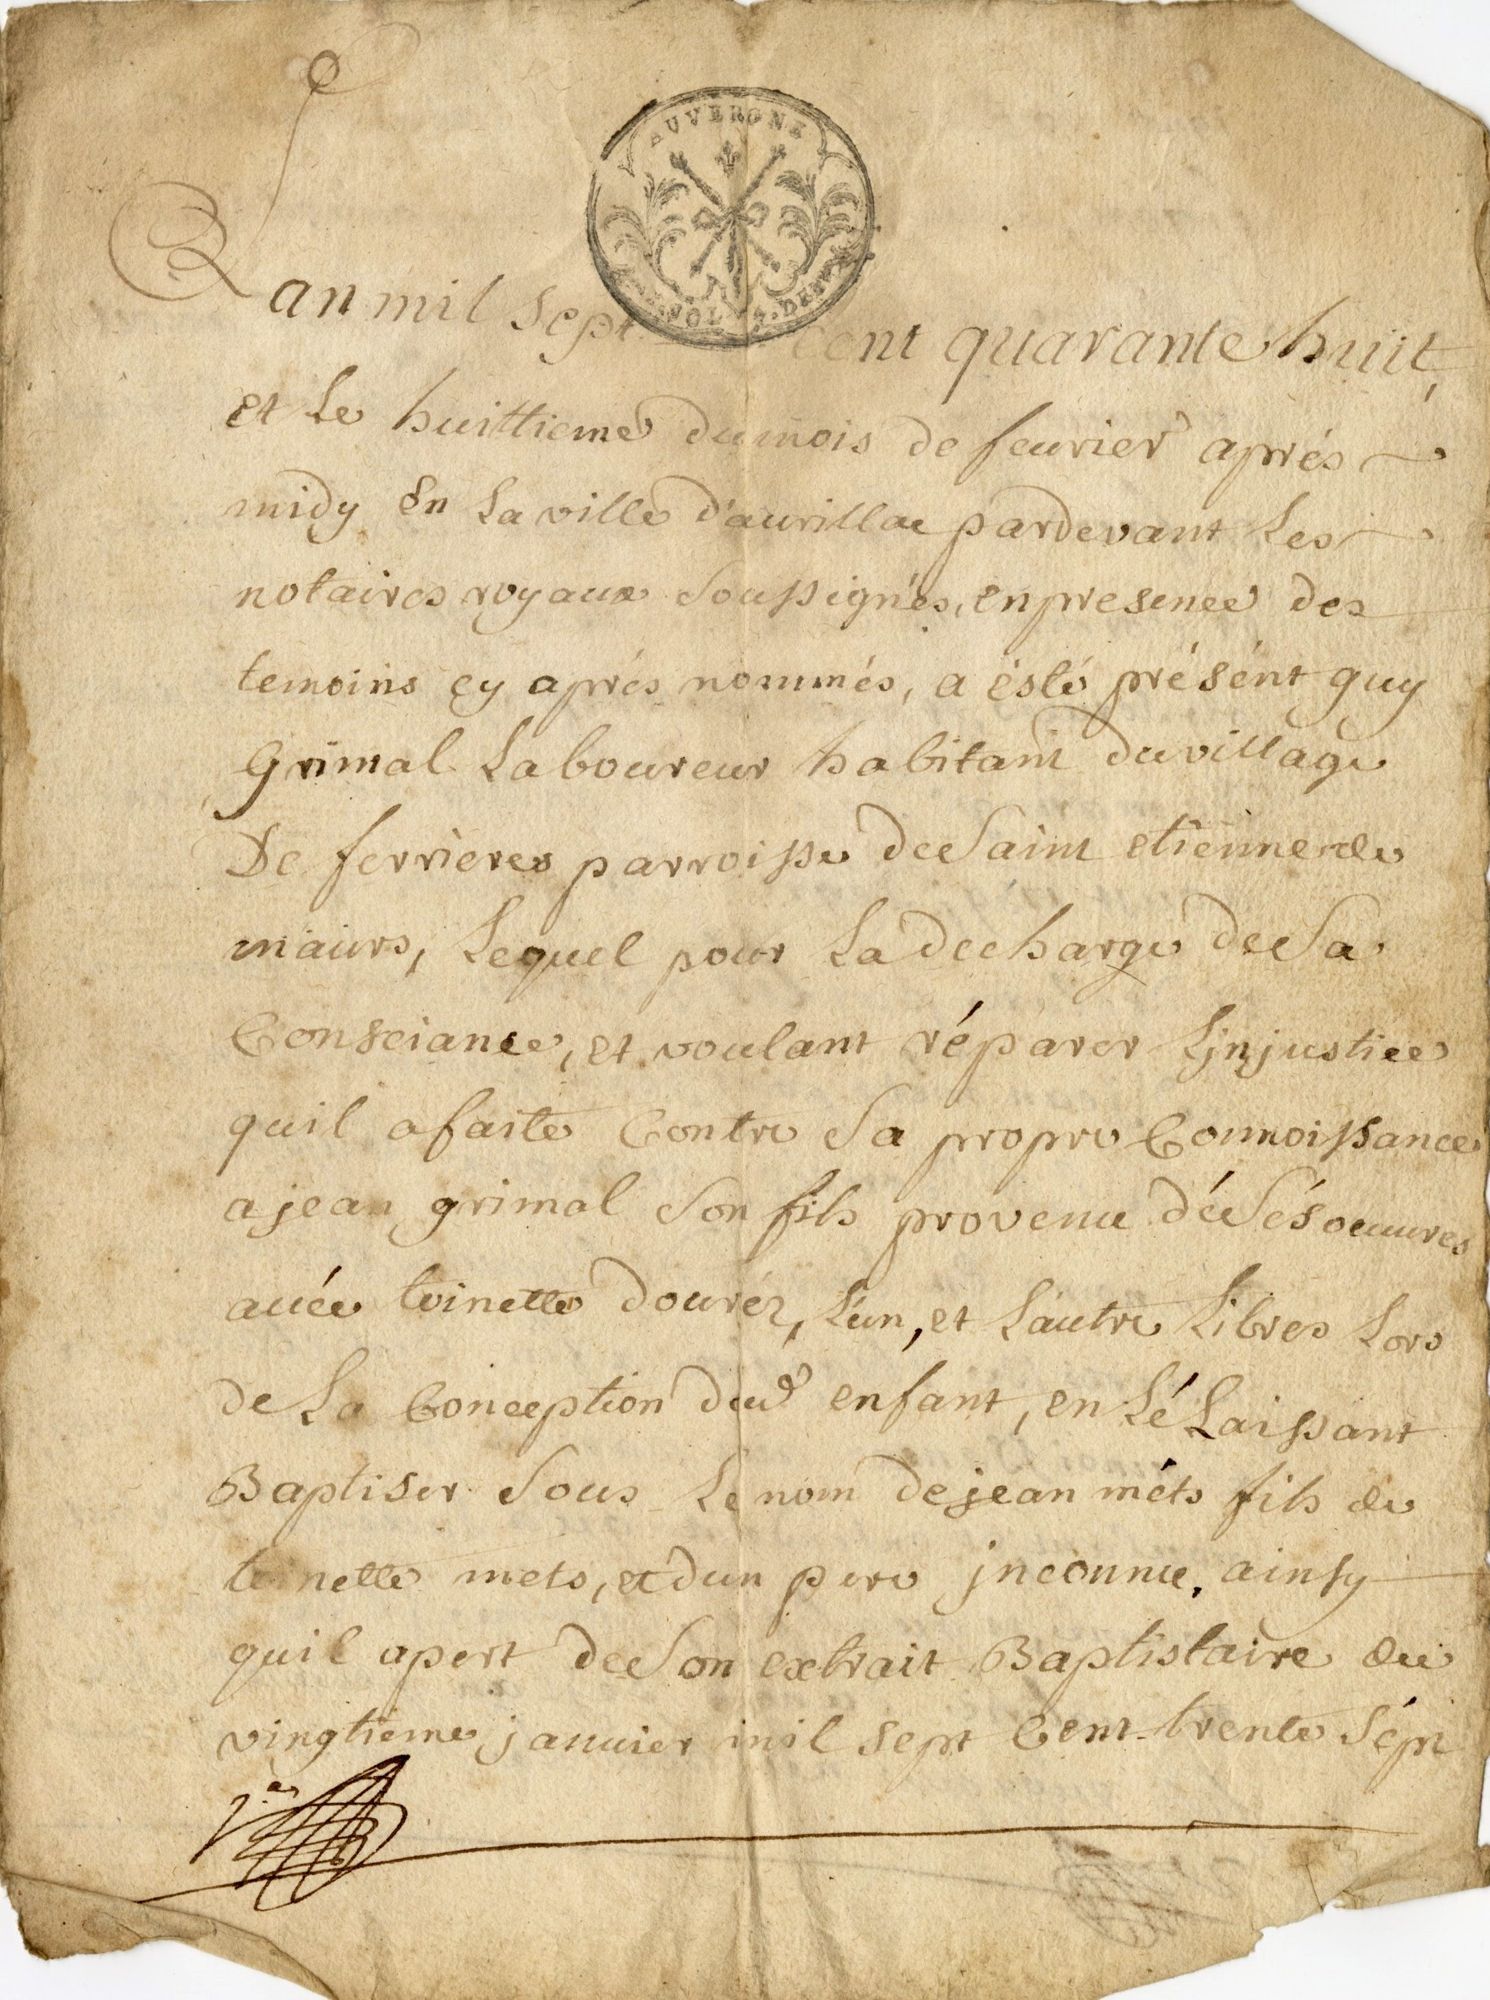 AUVERGNE
Lan mil sept cent quarante huit,
et Le huittieme du mois de feurier aprés
midy En La ville d'aurillac pardevant Les
notaires royaux Soussignés, en presence des
temoins cy aprés nommés, a ésté présént guy
Grimal Laboureur habitant du village
De ferrieres parroisse de Saint etienne de
maurs, Lequel pour La decharge de Sa
Consciance, et voulant réparer Linjustice
quil a faite Contre Sa propre Connoissance
a jean grimal Son fils provenu dé Sés oeuures
auéc toinette douréz, L'un, et L'autre Libres Lors
de La Conception dud enfant, en Lé Laissant
Baptiser Sous Le nom de jean méts fils de
toinette mets, et dun pere jnconnu. ainsy
quil apert de Son extrait Baptistaire du
vingtieme januier mil sept Cent trente Sépt